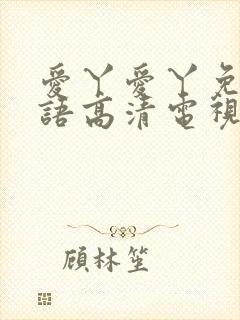 愛丫愛丫免
語高清電視
顧林笙